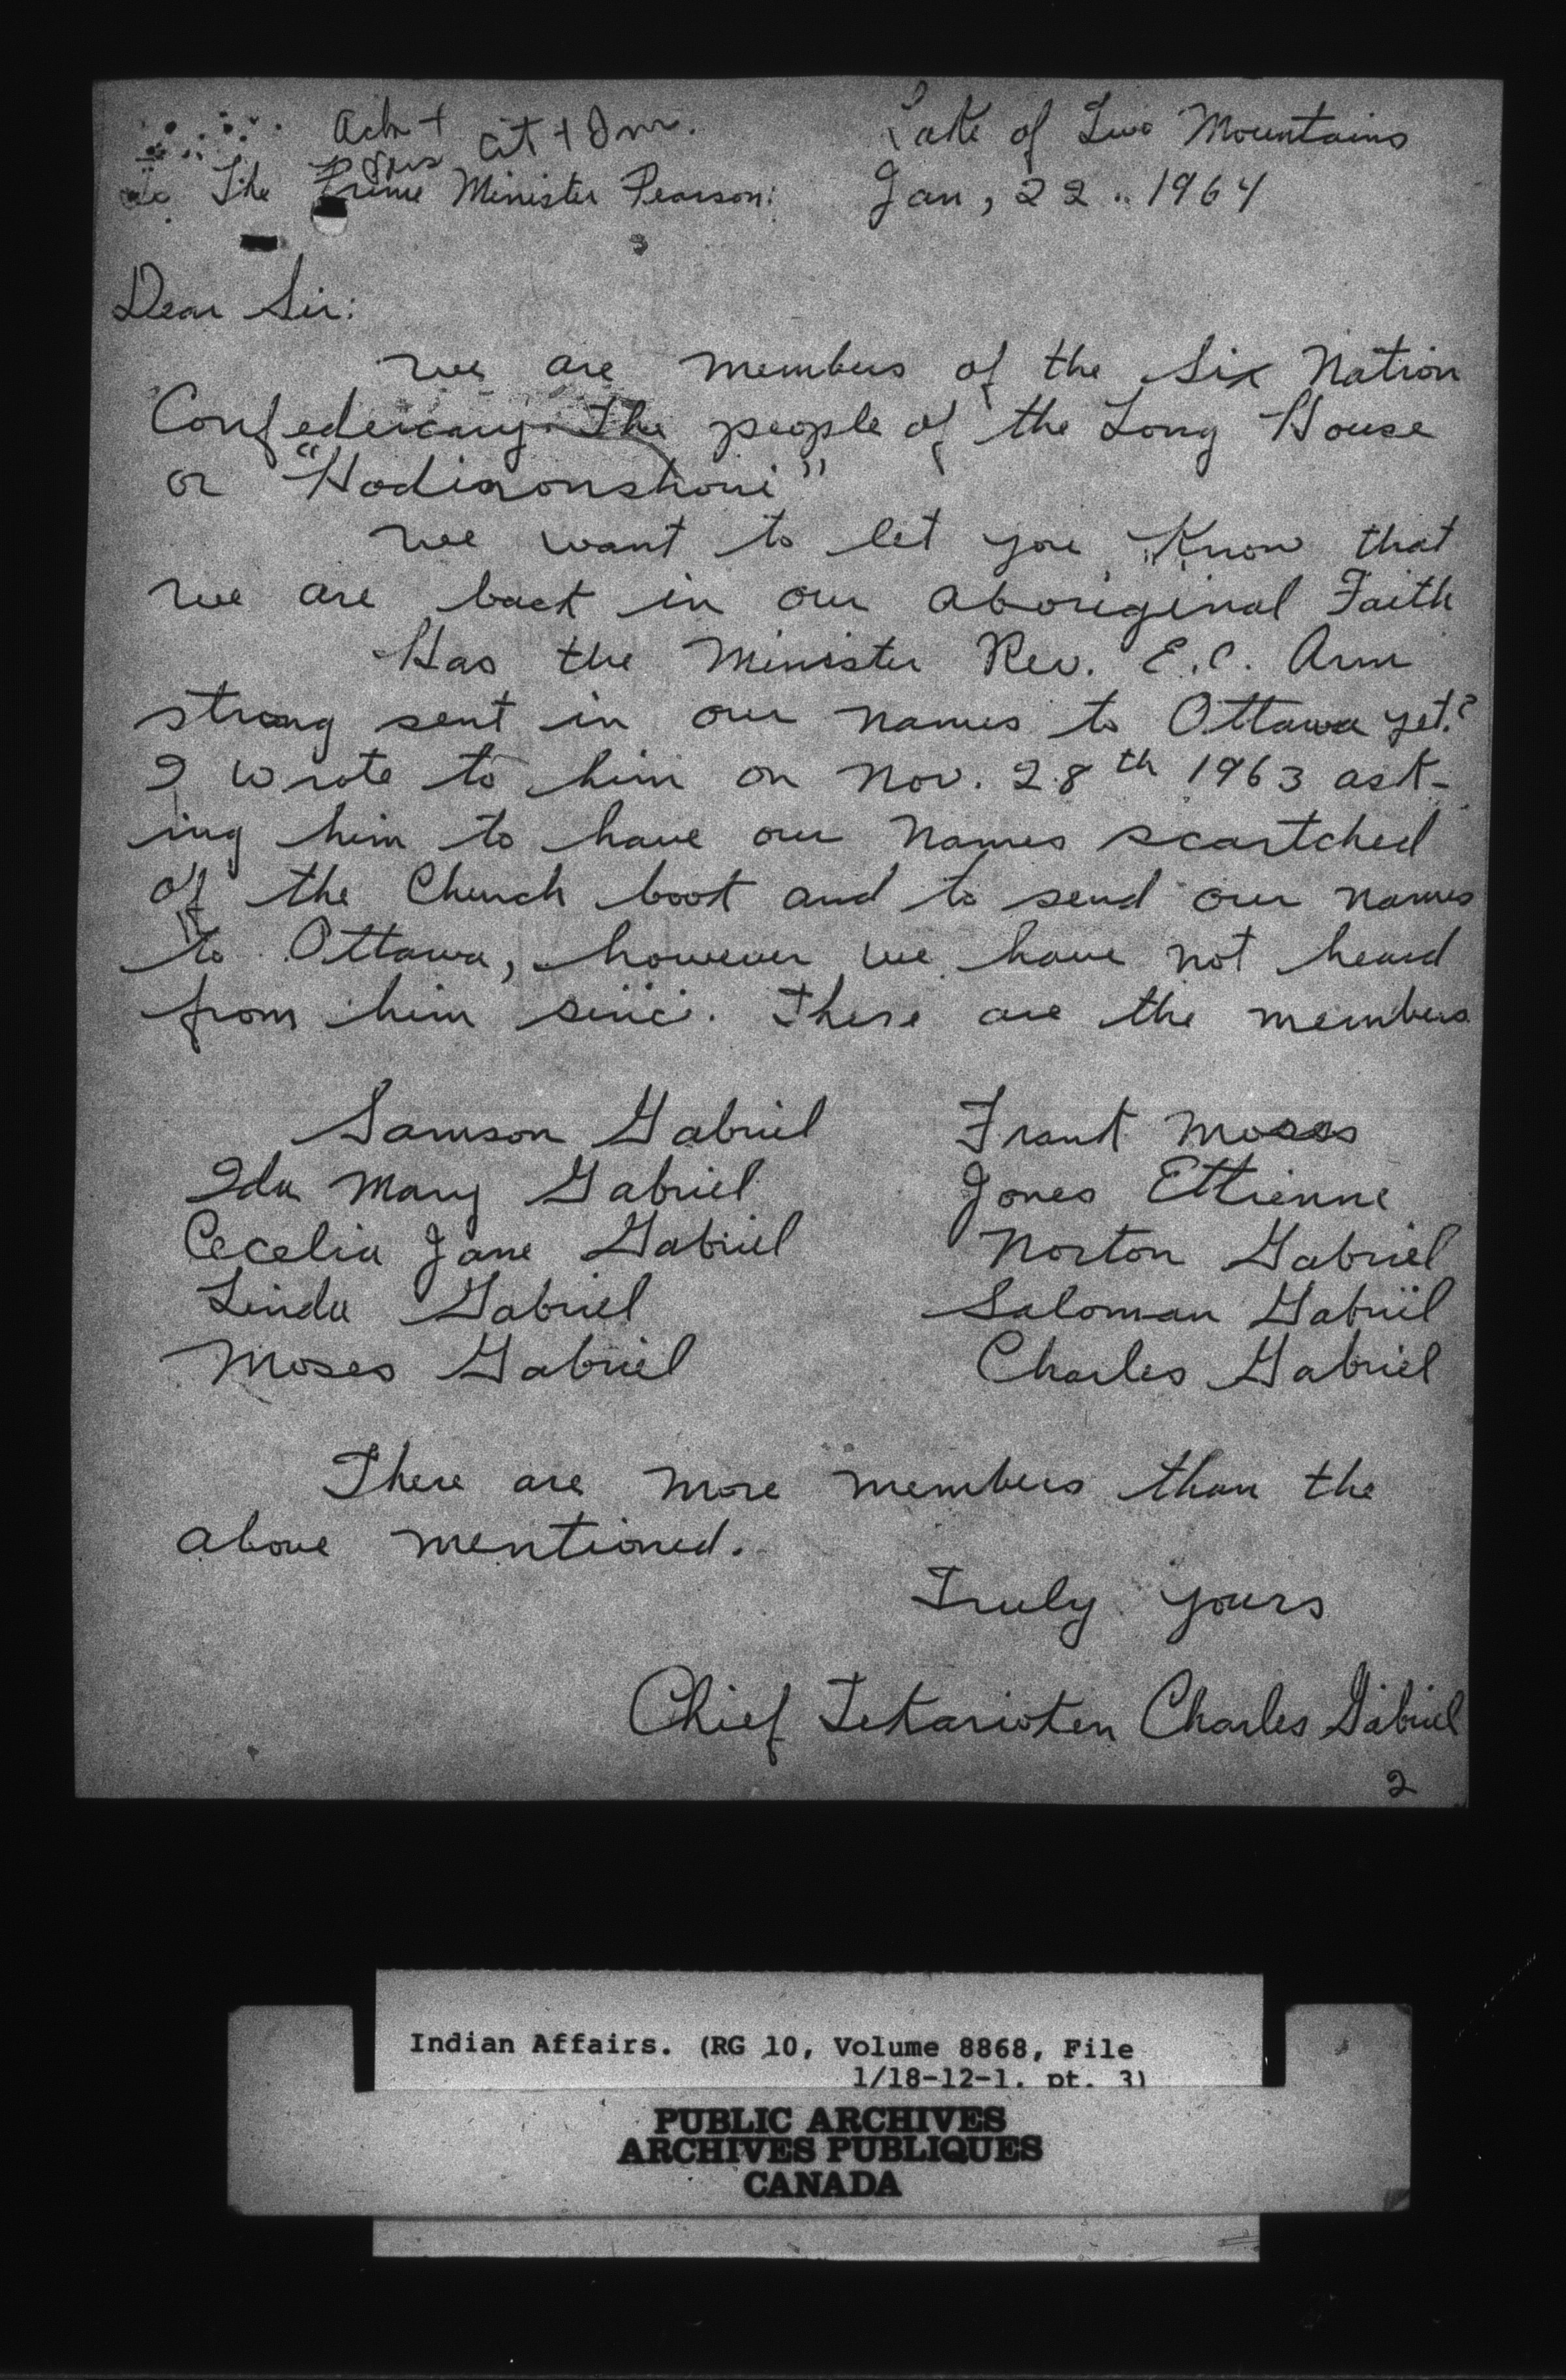 Ack +
Cit + Imm.
Lake of Two Mountains
To The Prime Minister Pearson:
Jan, 22.. 1964
Dear Sir:
We are members of the Six Nation
Confedericany. The people of the Long House
or "Hodinonshoni"
We want to let you Know that
we are back in our aboriginal Faith
Has the Minister Rev. E.C. Arm
strong sent in our names to Ottawa yet?
I wrote to him on Nov. 28th 1963 ask-
ing him to have our names scartched
of the Church book and to send our names
to Ottawa, however we have not heard
from him since. These are the members
Samson Gabriel
Frank Moses
Ida Mary Gabriel
Jones Ettienne
Cecelia Jane Gabriel
Norton Gabriel
Linda Gabriel
Saloman Gabriel
Moses Gabriel
Charles Gabriel
There are more members than the
above mentioned.
Truly yours
Chief Tekarioken Charles Gabriel
2
Indian Affairs. (RG 10, Volume 8868, File
1/18-12-1, pt. 3)
PUBLIC ARCHIVES
ARCHIVES PUBLIQUES
CANADA